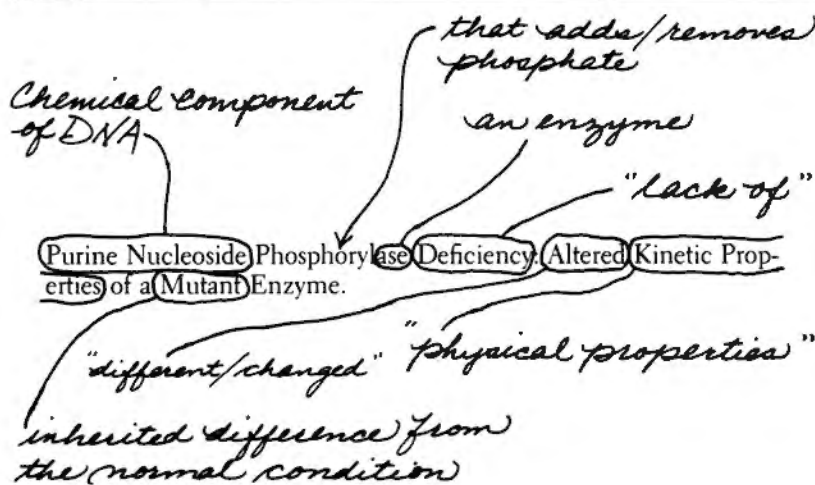 that adds/removes
phosphate
Chemical component
of DNA
an enzyme
"lack of"
Purine Nucleoside Phosphorylase Deficiency: Altered Kinetic Prop-
erties of a Mutant Enzyme.
"different/changed"
"physical properties"
inherited difference from
the normal condition